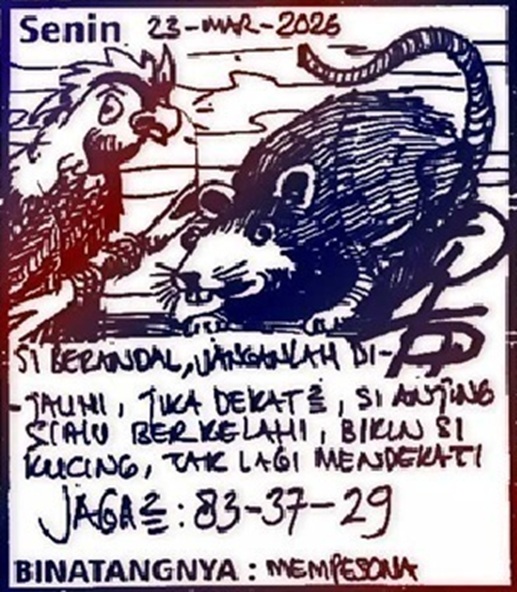 Senin 23-MAR-2026
SI BERANDAL, JANGANLAH DI-
-JAUHI, JIKA DEKAT², SI ANJING
SELALU BERKELAHI, BIKIN SI
KUCING, TAK LAGI MENDEKATI
JAGA²: 83-37-29
BINATANGNYA : MEMPESONA